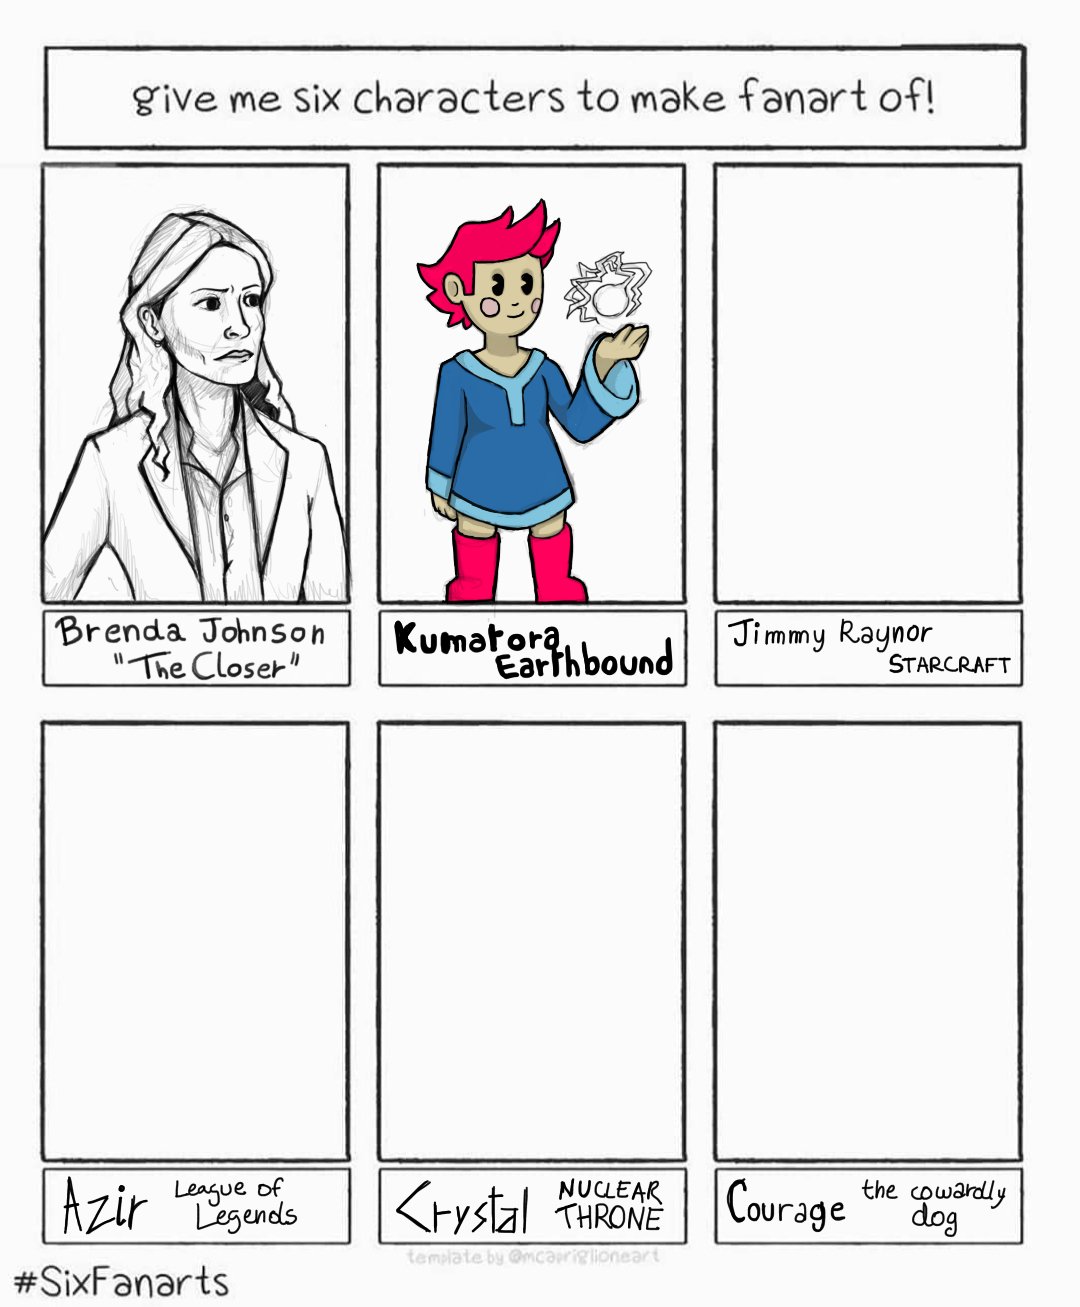 give me six characters to make fanart of!
Brenda Johnson
"The Closer"
Kumatora
Earthbound
Jimmy Raynor
STARCRAFT
Azir
League of
Legends
Crystal
NUCLEAR
THRONE
Courage
the cowardly
dog
template by @mcapriglioneart
#SixFanarts